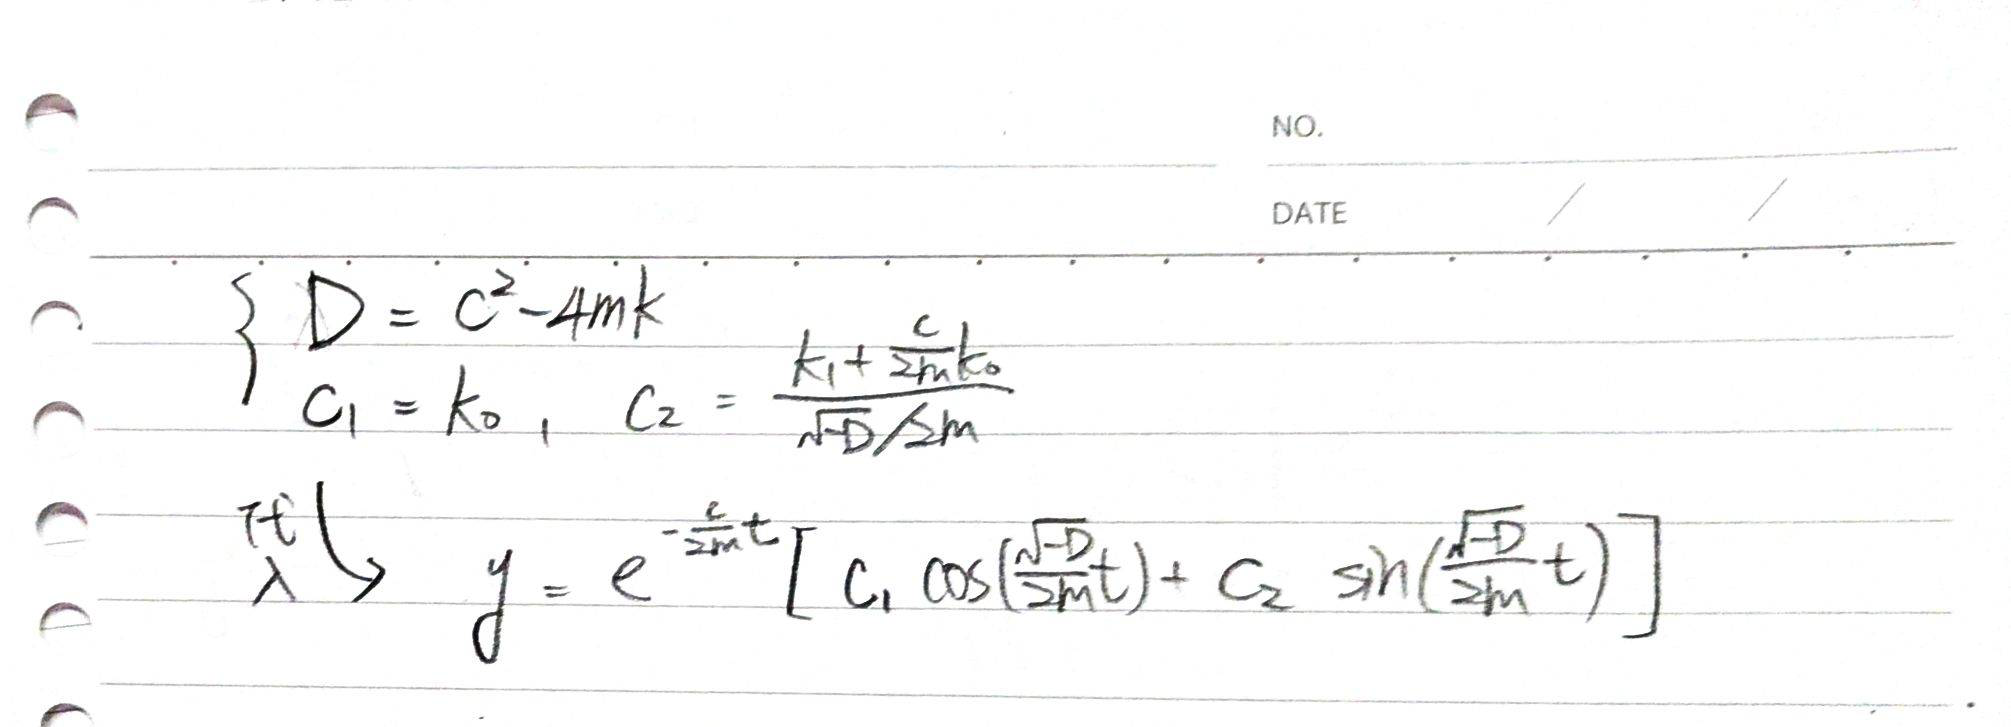 NO.
DATE / /
D = c² - 4mk
c₁ = k₀, c₂ = (k₁ + (c/2m)k₀) / (√-D/2m)
代入 y = e^(-(c/2m)t) [c₁ cos((√-D/2m)t) + c₂ sin((√-D/2m)t)]